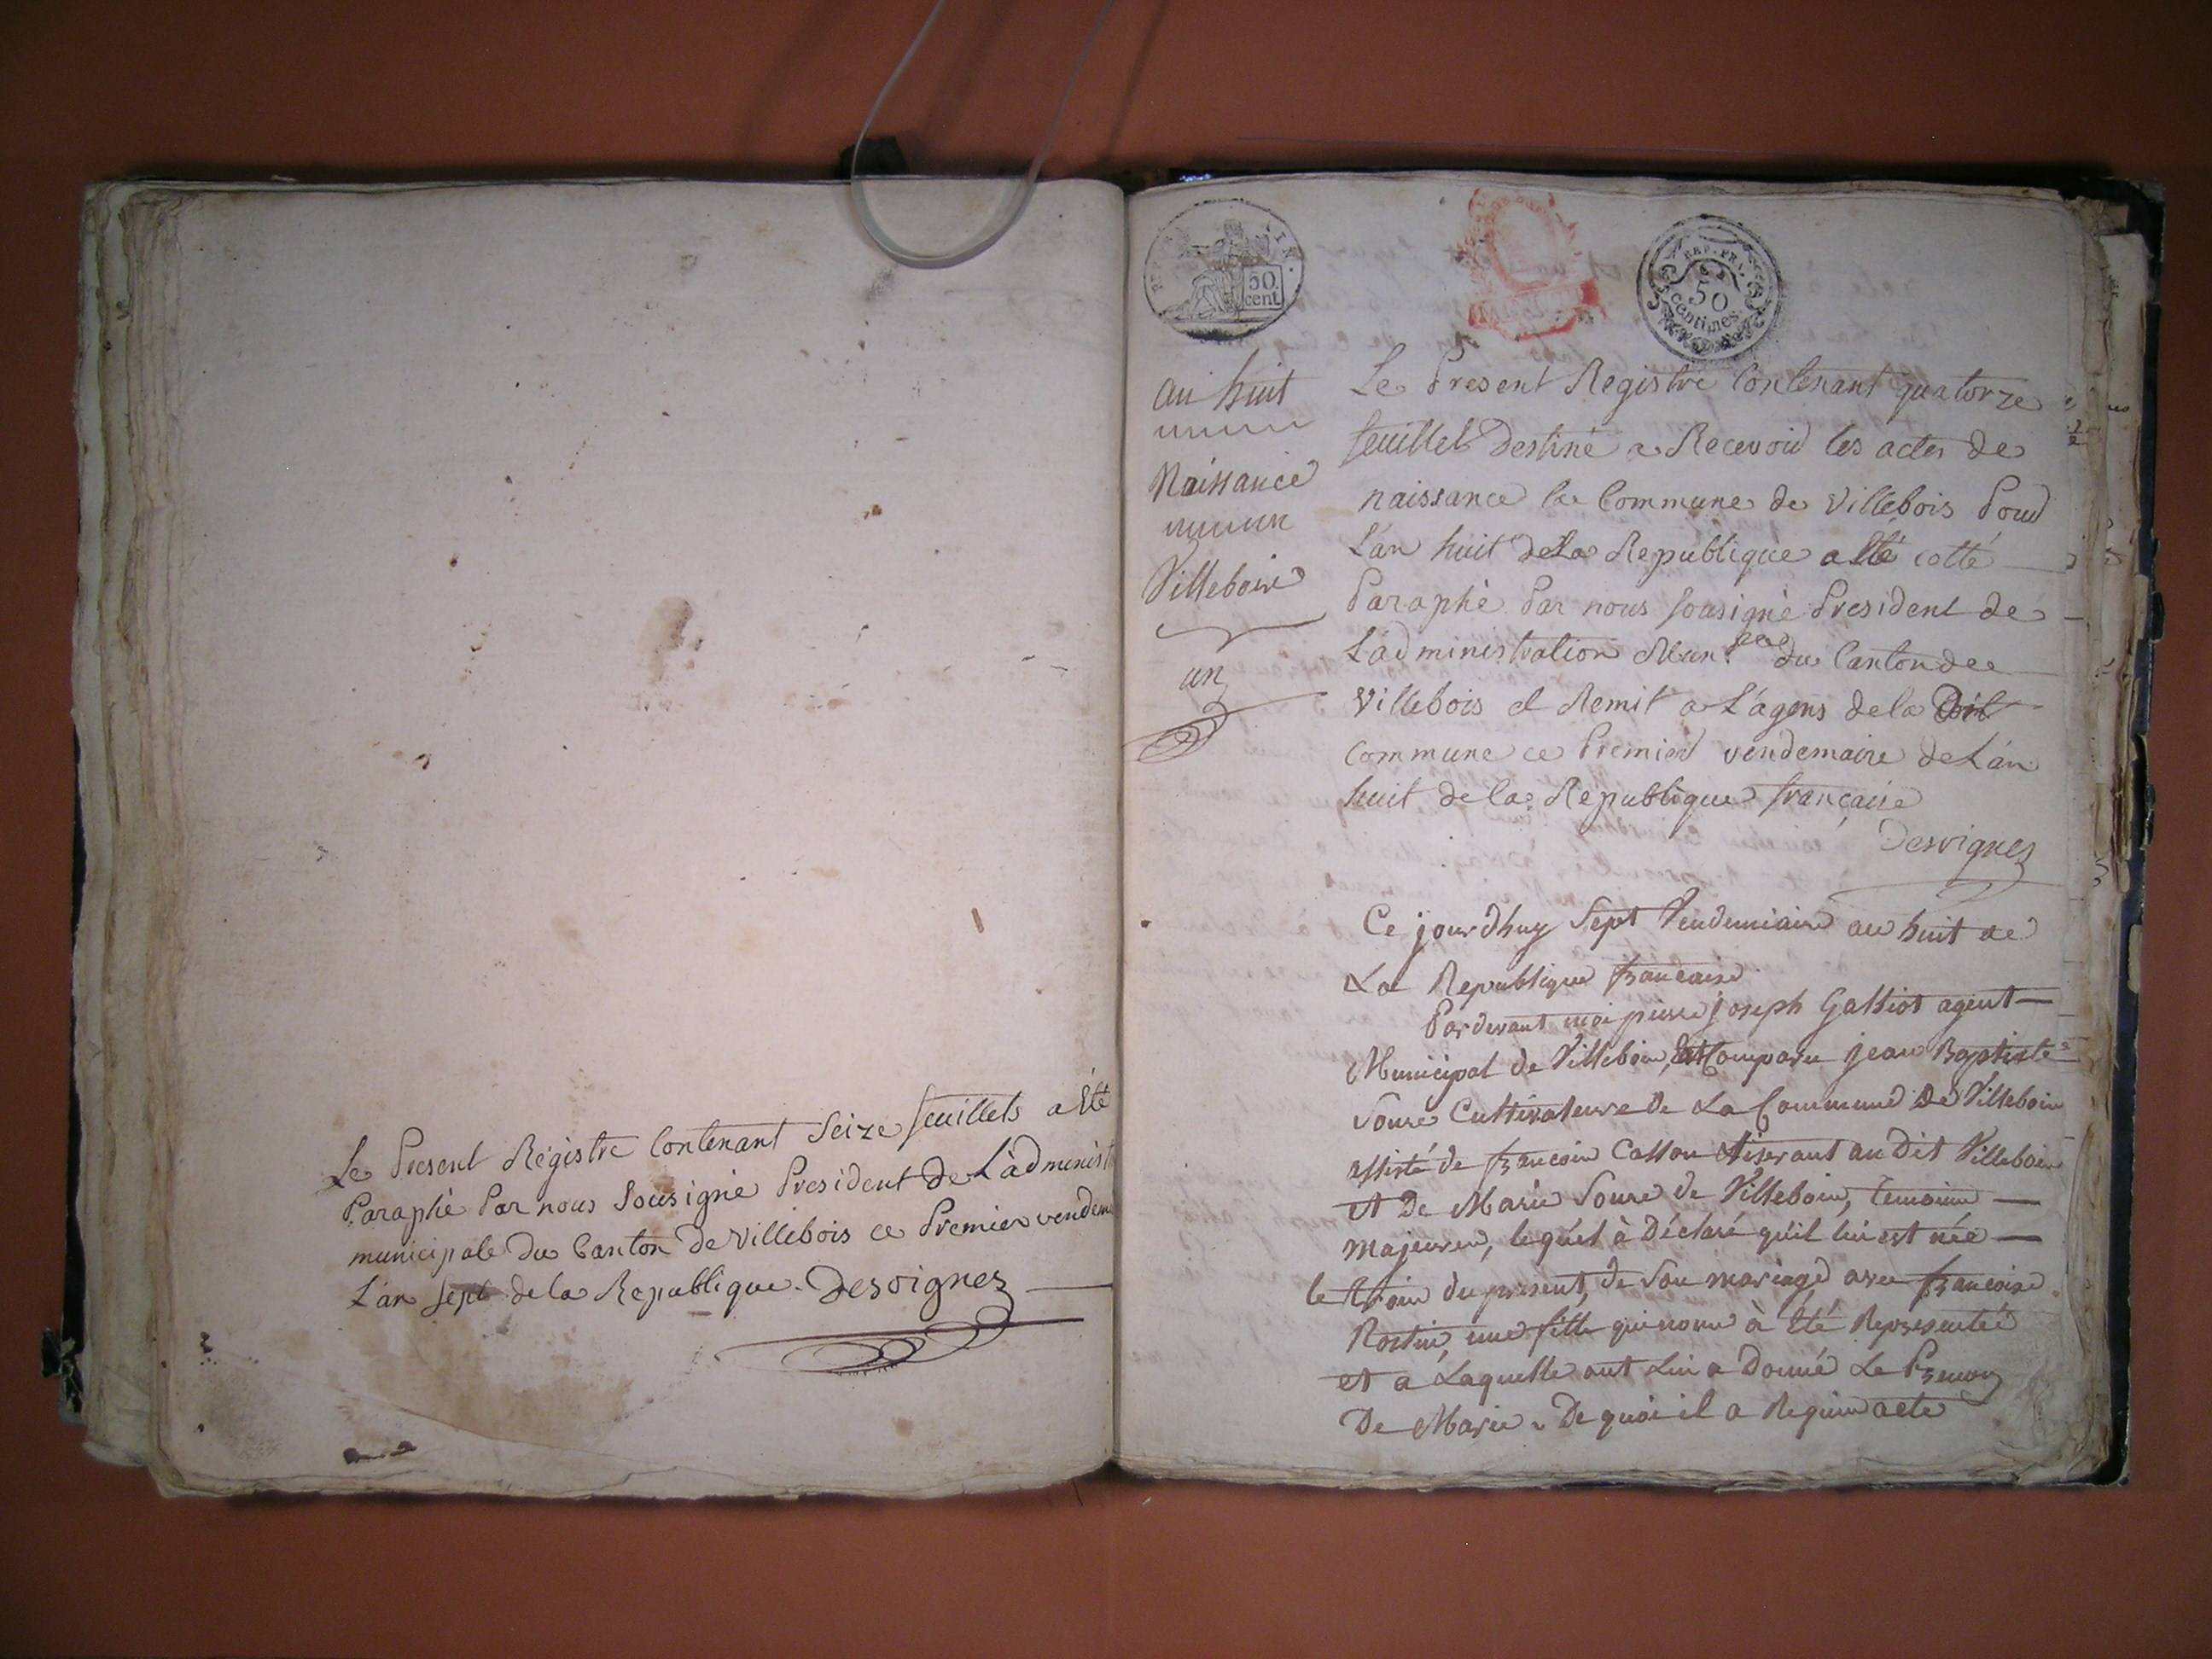 Le Present Registre Contenant Seize feuillets a Eté
Paraphé Par nous Sousigné President de L'administ
municipale du Canton de Villebois ce Premier vendem
L'an sept de la Republique. Desvignes
50
cent
REP. FRA.
50
centimes
an huit
Naissance
Villebois
un
Le Present Registre Contenant quatorze
feuillet Destiné a Recevoir les actes de
naissance la Commune de Villebois Pour
L'an huit de La Republique a Eté cotté
Paraphé Par nous sousigné President de
L'administration Mun.pale du Canton de
Villebois et Remit a L'agens de la Dit
Commune ce Premier vendemaire de L'an
huit de la Republique française
Desvignes
Ce jourdhuy Sept Vendemiaire an huit de
La Republique francaise
Pardevant moi pierre joseph Galliot agent
Municipal de Villebois, Est Comparu jean Baptiste
Soure Cultivateur de La Commune De Villebois
assisté de francois Casson tiserant au Dit Villebois
et De Marie Soure de Villebois, temoins
majeures, lequel à Déclaré qu'il lui est née
le trois du present, de Son mariage avec francoise
Rostin, une fille qui nous à Eté Representée
et a Laquelle ont Lui a Donné Le Prenom
De Marie. De quoi il a Requis acte